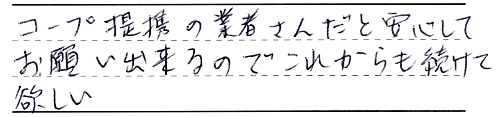 コープ提携の業者さんだと安心して
お願い出来るのでこれからも続けて
欲しい